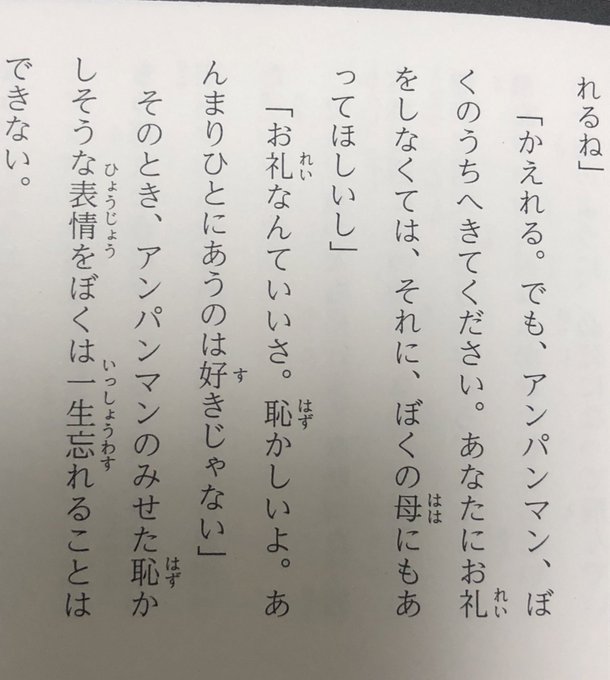 れるね」
「かえれる。でも、アンパンマン、ぼ
くのうちへきてください。あなたにお礼
をしなくては、それに、ぼくの母にもあ
ってほしいし」
「お礼なんていいさ。恥かしいよ。あ
んまりひとにあうのは好きじゃない」
そのとき、アンパンマンのみせた恥か
しそうな表情をぼくは一生忘れることは
できない。